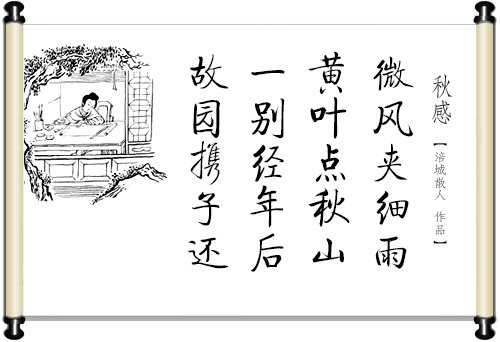 秋感
【涪城散人 作品】
微风夹细雨
黄叶点秋山
一别经年后
故园携子还